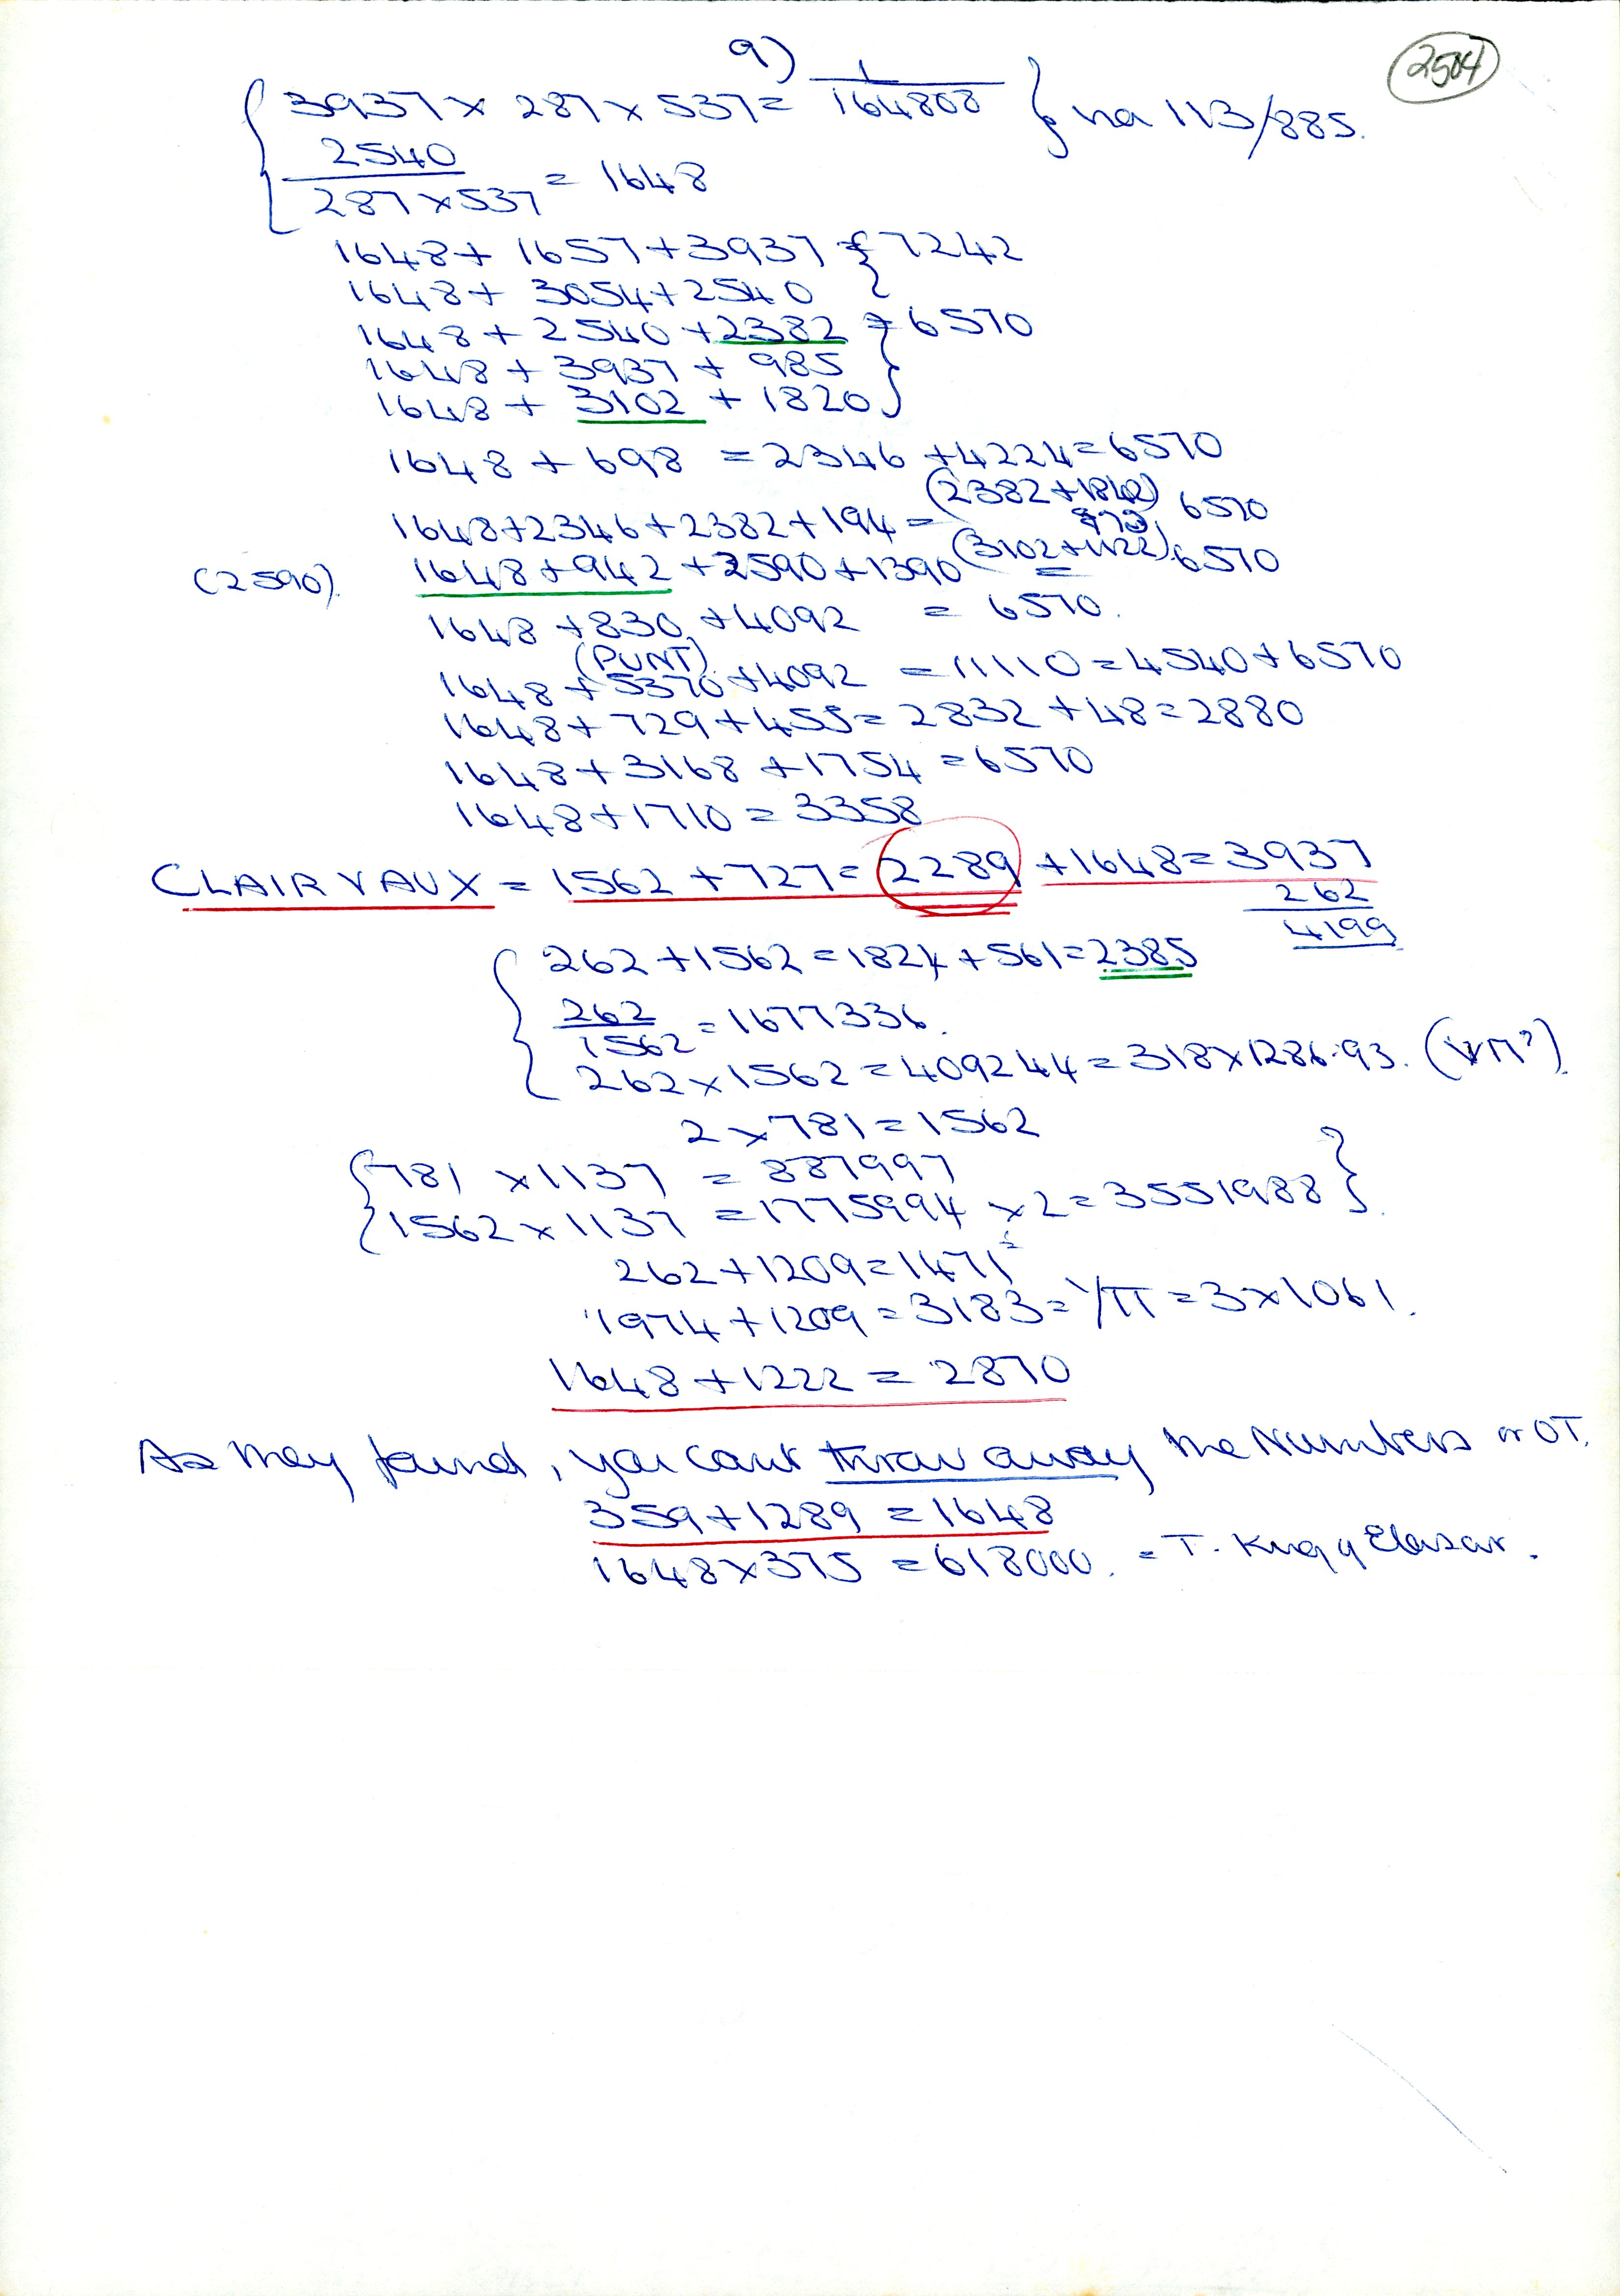 9)
2504
3937 × 287 × 537 = 1/164808 } na 113/885.
2540/287×537 = 1648
1648 + 1657 + 3937 = } 7242
1648 + 3054 + 2540
1648 + 2540 + 2382 = 6570
1648 + 3937 + 985
1648 + 3102 + 1820 }
1648 + 698 = 2346 + 4224 = 6570
(2382 + 1842)
1648 + 2346 + 2382 + 194 = 6570
(3102 + 1122)
(2590). 1648 + 942 + 2590 + 1390 = 6570
1648 + 830 + 4092 = 6570.
(PUNT)
1648 + 5370 + 4092 = 11110 = 4540 + 6570
1648 + 729 + 455 = 2832 + 48 = 2880
1648 + 3168 + 1754 = 6570
1648 + 1710 = 3358
CLAIRVAUX = 1562 + 727 = 2289 + 1648 = 3937
262
4199
262 + 1562 = 1824 + 561 = 2385
262/1562 = 1677336.
262 × 1562 = 409244 = 318 × 1286.93.
2 × 781 = 1562
{ 781 × 1137 = 887997
1562 × 1137 = 1775994 × 2 = 3551988 }.
262 + 1209 = 1471
1974 + 1209 = 3183 = 1/π = 3 × 1061.
1648 + 1222 = 2870
As they found, you cant throw away the Numbers in OT.
359 + 1289 = 1648
1648 × 375 = 618000. = T. King of Elasar.